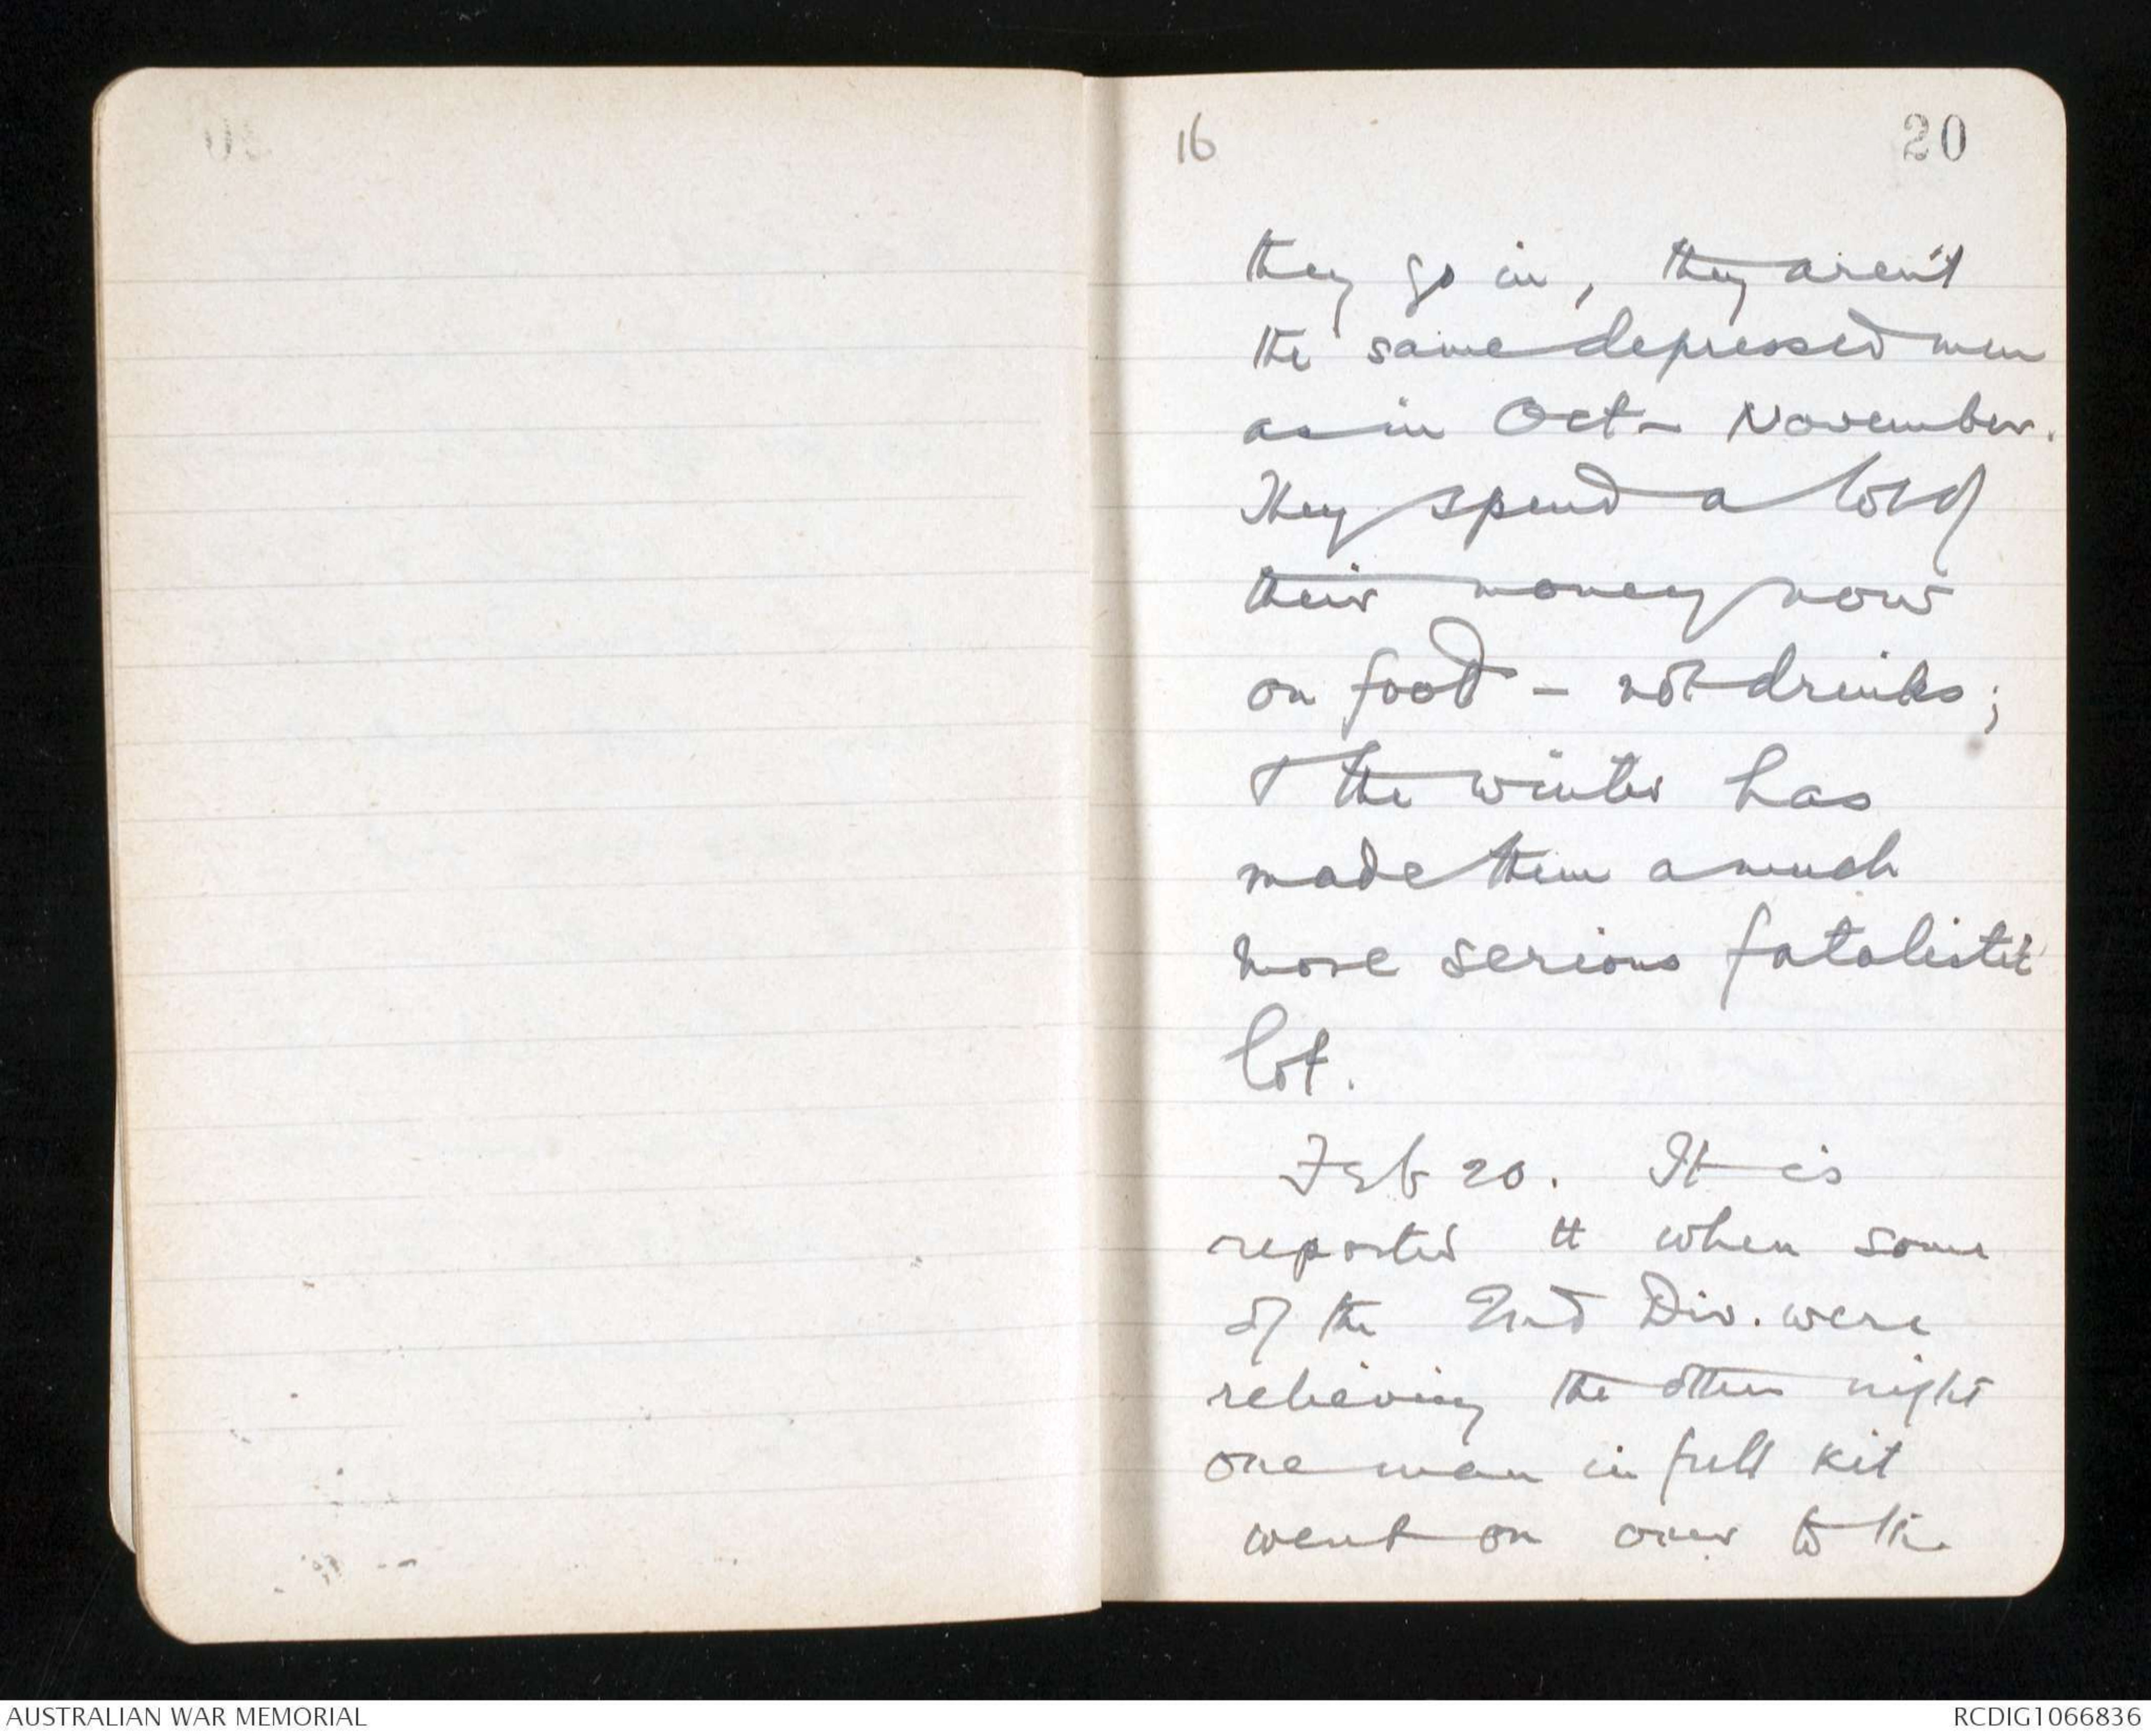 16
20
they go in, they aren't
the same depressed men
as in Oct - November.
They spend a lot of
their money now
on food - not drinks;
& the winter has
made them a much
more serious fatalistic
lot.
Feb 20. It is
reported tt when some
of the 2nd Div. were
relieving the other night
one man in full kit
went on over to the
AUSTRALIAN WAR MEMORIAL
RCDIG1066836